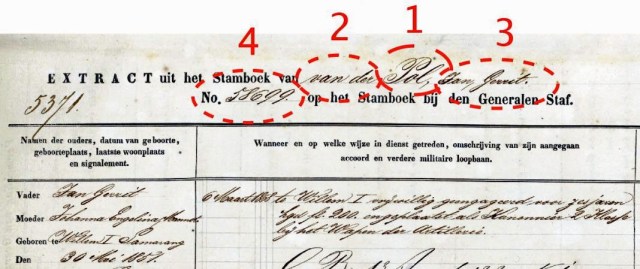 4 2 1 3
EXTRACT uit het Stamboek van van der Pol, Jan Gerrit.
5371.
No. 58699. op het Stamboek bij den Generalen Staf.
Namen der ouders, datum van geboorte,
geboorteplaats, laatste woonplaats
en signalement.
Wanneer en op welke wijze in dienst getreden, omschrijving van zijn aangegaan
accoord en verdere militaire loopbaan.
Vader Jan Gerrit
Moeder Johanna Engelina
Geboren te Willem I Samarang
Den 30 Mei
6 Maart te Willem I vrijwillig geengageerd voor zes jaren
fl. 200. en geplaatst als Kanonnier 2e Klasse
bij het Wapen der Artillerie.